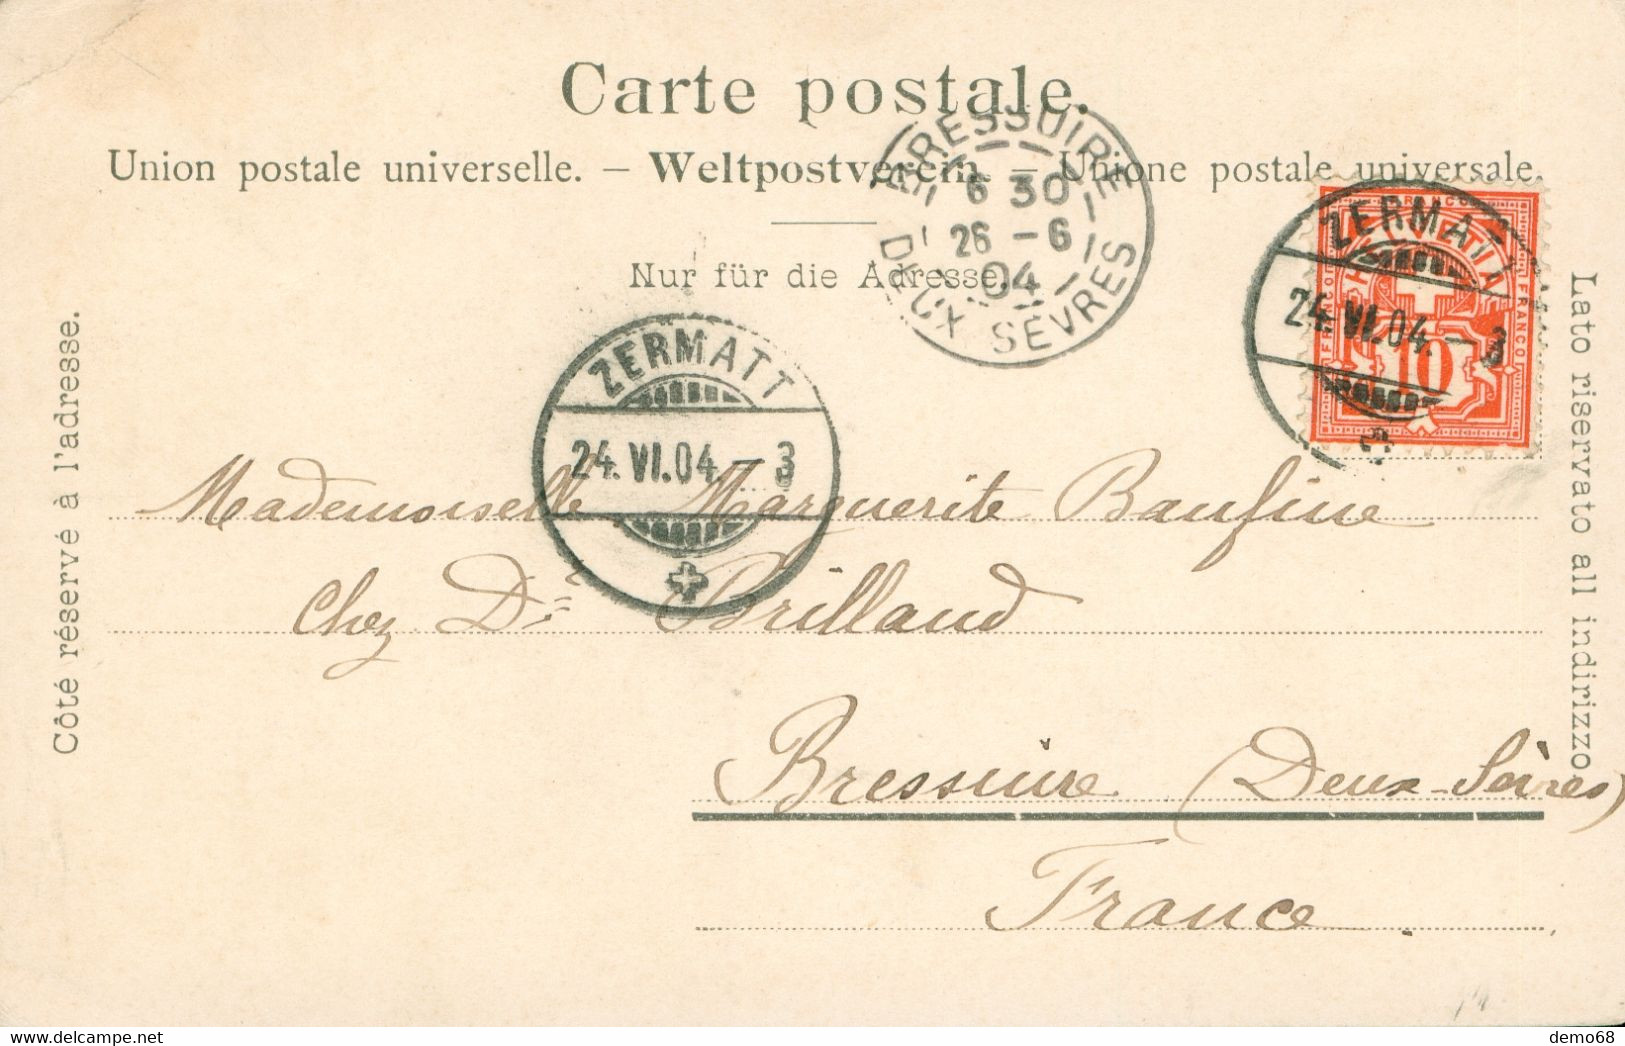 Carte postale.
Union postale universelle. — Weltpostverein. — Unione postale universale.
Nur für die Adresse.
Côté réservé à l'adresse.
Lato riservato all indirizzo
BRESSUIRE
6 30
26 - 6
04
DEUX SÈVRES
ZERMATT
24.VI.04.-3
FRANCO
HELVETIA
FRANCO
FRANCO
10
ZERMATT
24.VI.04.-3
Mademoiselle Marguerite Baufine
Chez Dr Brilland
Bressuire (Deux-Sèvres)
France
delcampe.net
domeo68